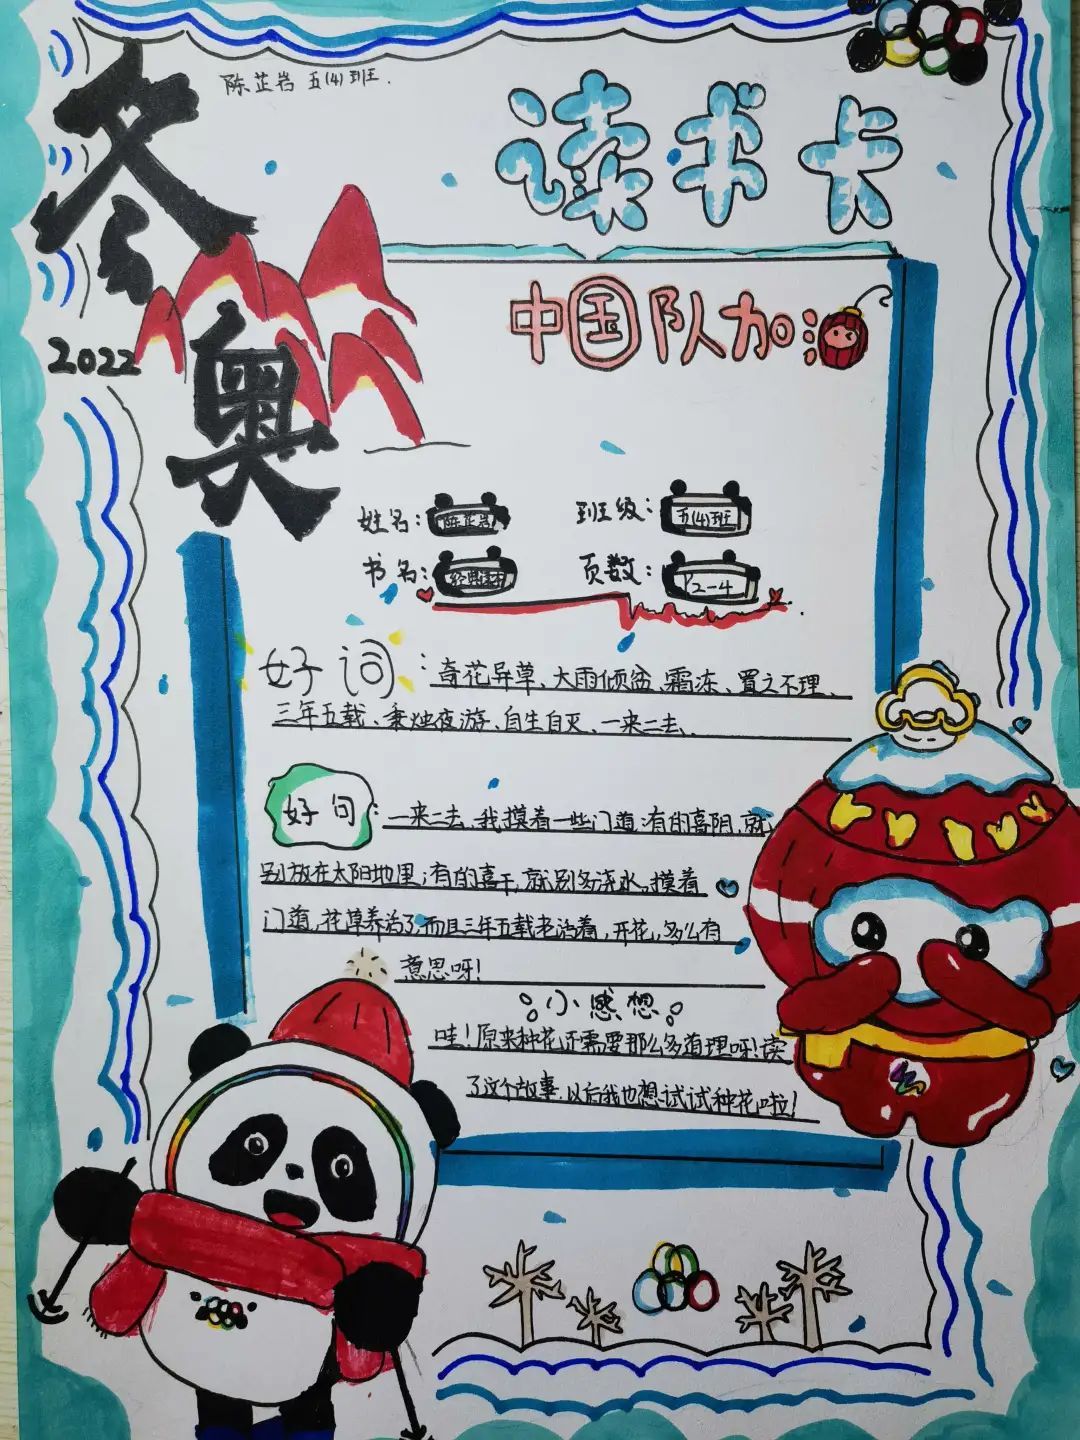 陈芷岩 五(4)班.
冬
奥
2022
读书卡
中国队加油
姓名: 陈芷岩
班级: 五(4)班
书名: 经典读本
页数: P2-4
好词: 奇花异草、大雨倾盆、霜冻、置之不理、
三年五载、秉烛夜游、自生自灭、一来二去、
好句: 一来二去,我摸着一些门道:有的喜阴,就
别放在太阳地里;有的喜干,就别多浇水。摸着
门道,花草养活了,而且三年五载老活着,开花,多么有
意思呀!
小感想
哇!原来种花还需要那么多道理呀!读
了这个故事,以后我也想试试种花啦!